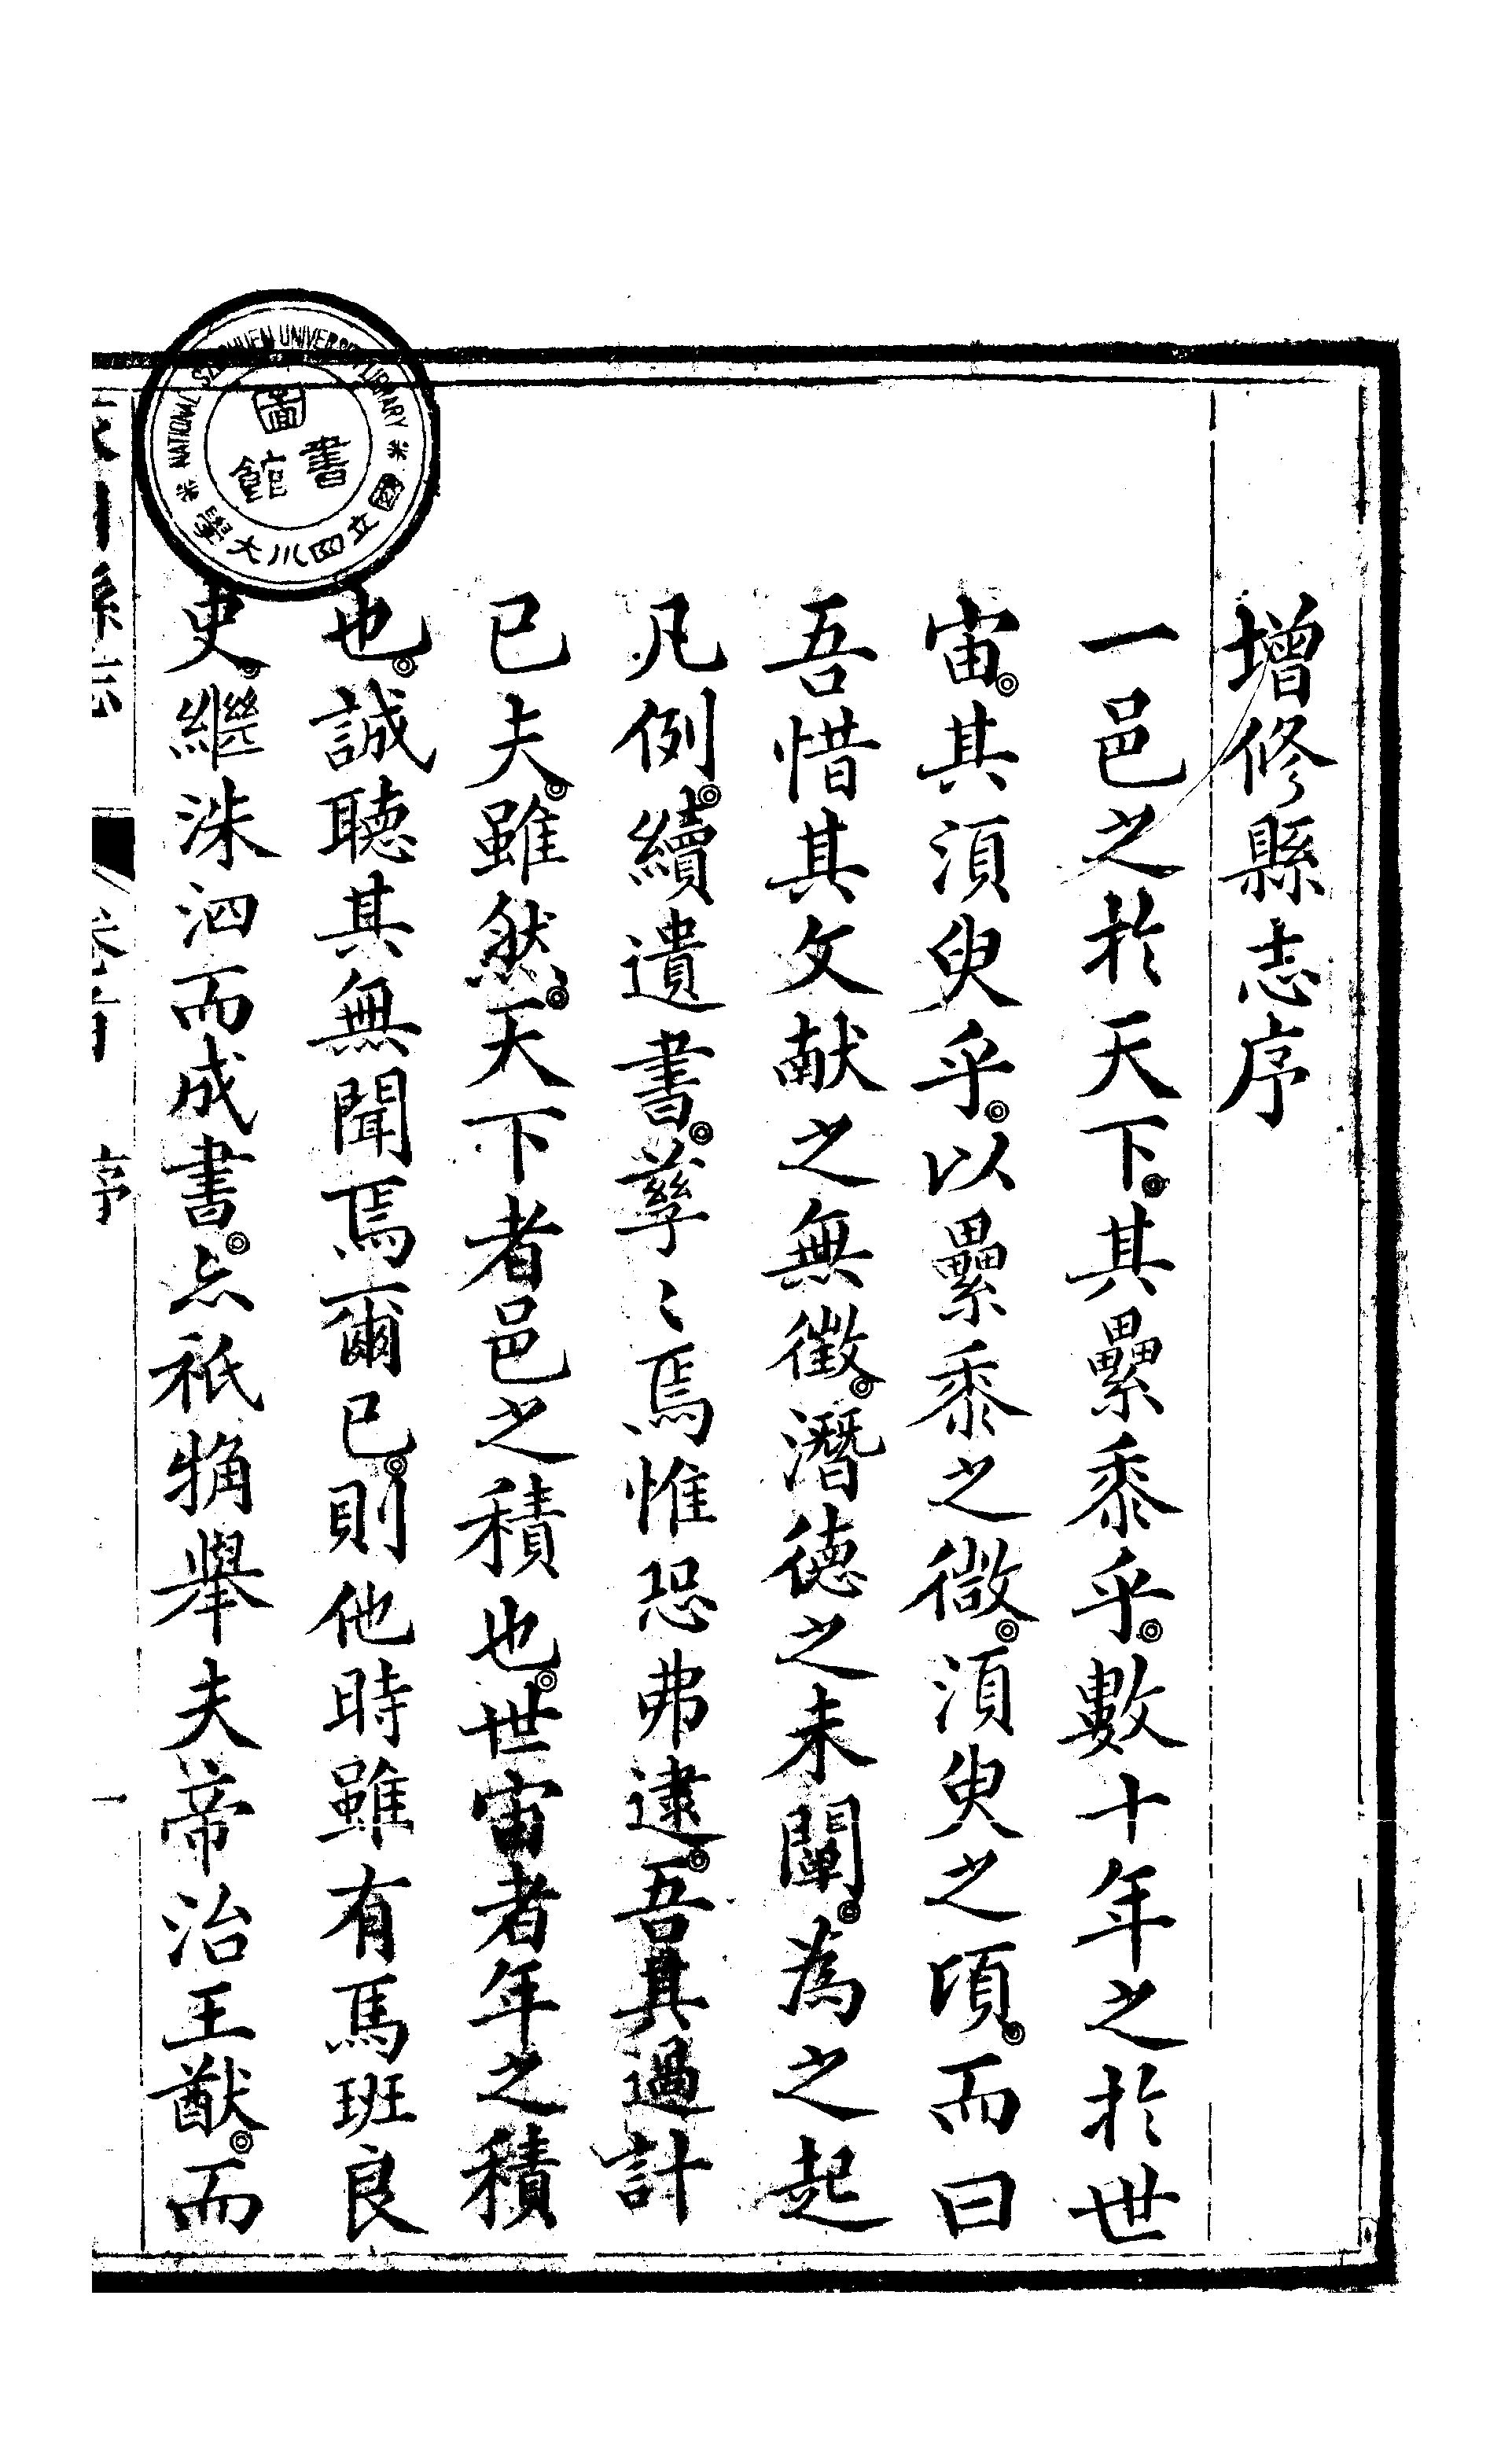 增修縣志序
一邑之於天下其纍黍乎數十年之於世
宙其須臾乎以纍黍之微須臾之頃而曰
吾惜其文献之無徵潛德之未闡為之起
凡例續遺書孳〻焉惟恐弗逮吾其過計
已夫雖然天下者邑之積也世宙者年之積
也誠聽其無聞焉爾已則他時雖有馬班良
史繼洙泗而成書亦祇觕舉夫帝治王猷而
川縣志
卷首
序
一
NATIONAL SZECHUEN UNIVERSITY LIBRARY
國立四川大學
圖書館